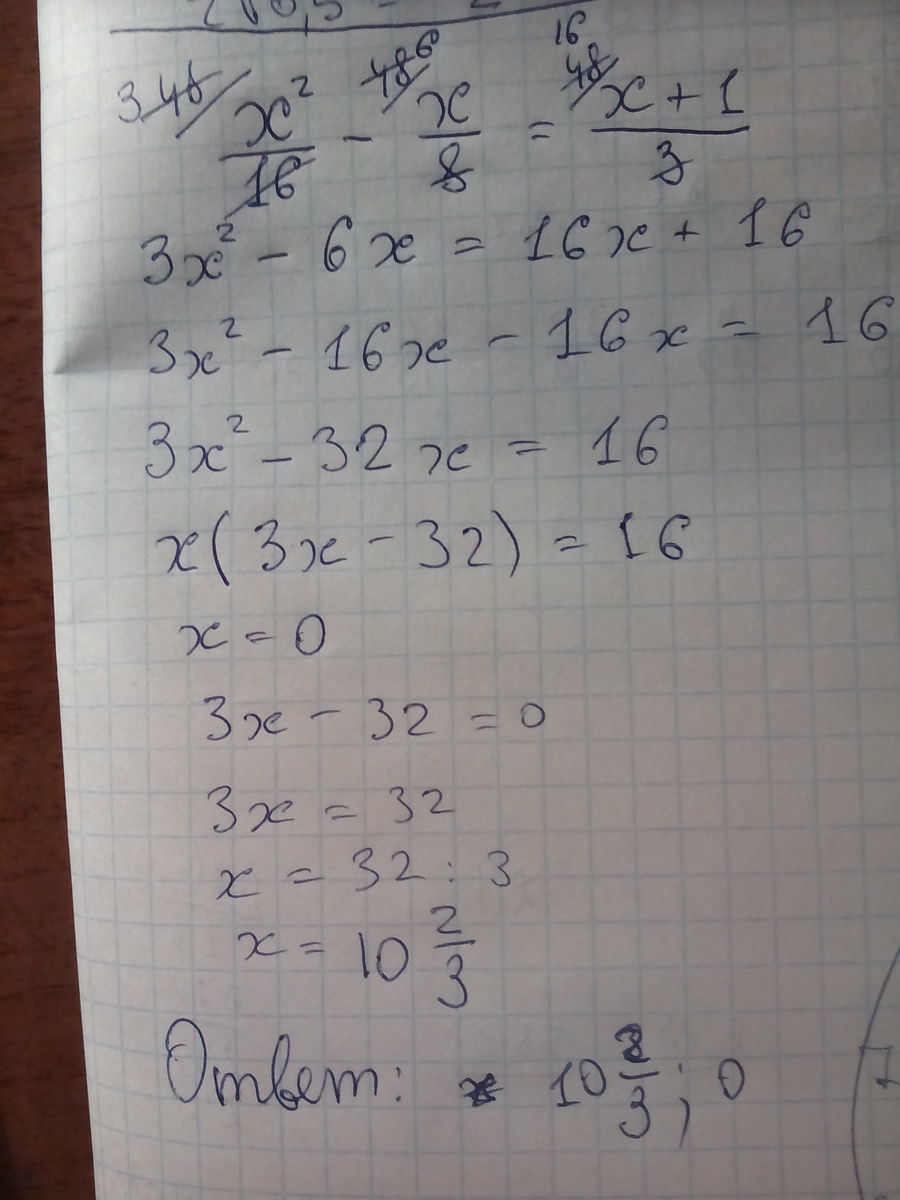 3 48 x²/16 - 48 6 x/8 = 48 16 x + 1/3
3x² - 6x = 16x + 16
3x² - 16x - 16x = 16
3x² - 32x = 16
x(3x - 32) = 16
x = 0
3x - 32 = 0
3x = 32
x = 32 : 3
x = 10 2/3
Ответ: 10 2/3; 0